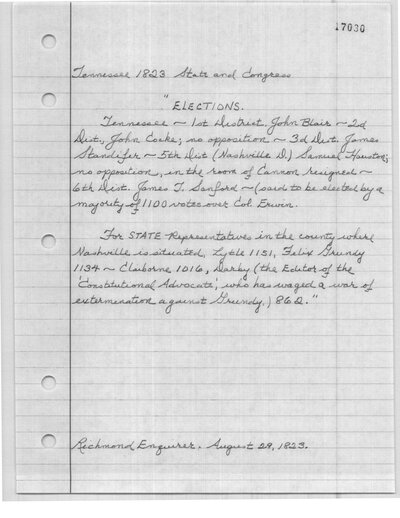 17030
Tennessee 1823 State and Congress
"ELECTIONS.
Tennessee ~ 1st District. John Blair ~ 2d
Dist., John Cocke; no opposition ~ 3d Dist. James
Standifer ~ 5th Dist (Nashville D.) Samuel Houston;
no opposition, in the room of Cannon resigned ~
6th Dist. James T. Sanford ~ (said to be elected by a
majority of 1100 votes over Col. Erwin.
For STATE Representatives in the county where
Nashville is situated, Lytle 1151, Felix Grundy
1134 ~ Claiborne 1016, Darby (the Editor of the
'Constitutional Advocate', who has waged a war of
extermination against Grundy.) 862."
Richmond Enquirer. August 29, 1823.